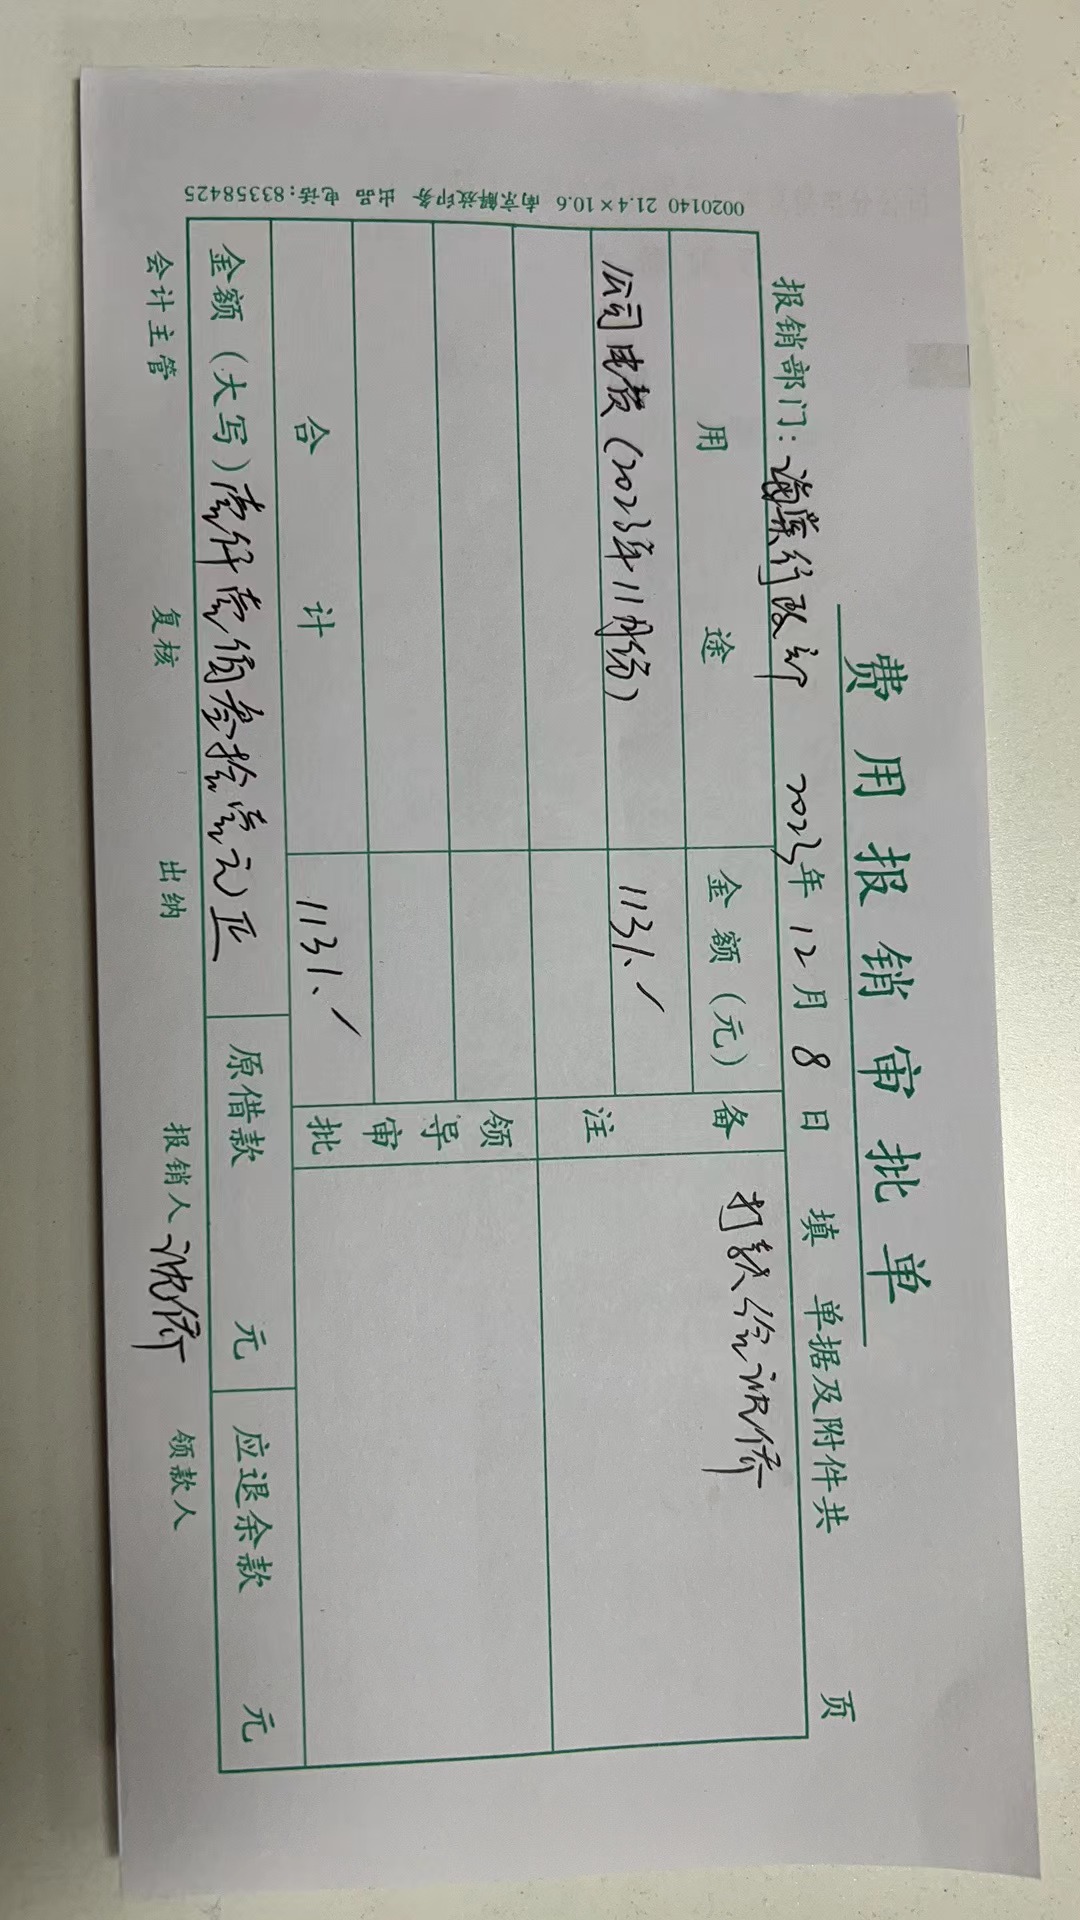 费用报销审批单
报销部门：海棠行政部 2023年12月8日填 单据及附件共 页
用途 金额（元） 备注
公司电费（2023年11月份） 1131.
打款给沈侨
领导审批
合计 1131.
金额（大写）壹仟壹佰叁拾壹元正 原借款 元 应退余款 元
会计主管 复核 出纳 报销人 沈侨 领款人
0020140 21.4×10.6 南京解放印务 出品 电话：83358425